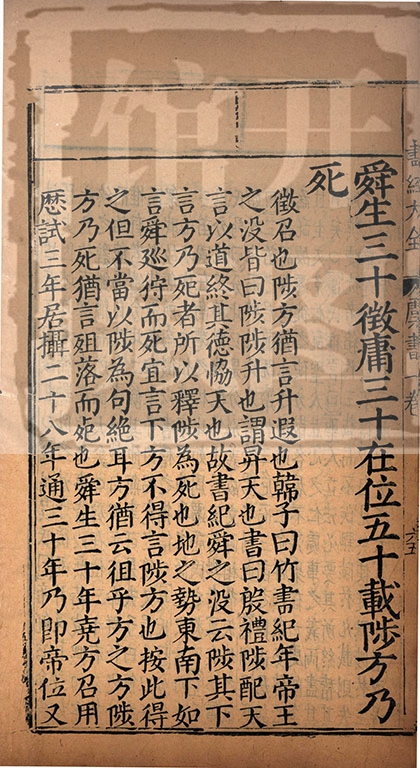 舜生三十徵庸三十在位五十載陟方乃
死
徵召也陟方猶言升遐也韓子曰竹書紀年帝王
之沒皆曰陟陟升也謂昇天也書曰殷禮陟配天
言以道終其德恊天也故書紀舜之沒云陟其下
言方乃死者所以釋陟為死也地之勢東南下如
言舜廵狩而死宜言下方不得言陟方也按此得
之但不當以陟為句絶耳方猶云徂乎方之方陟
方乃死猶言殂落而死也舜生三十年堯方召用
歷試三年居攝二十八年通三十年乃即帝位又